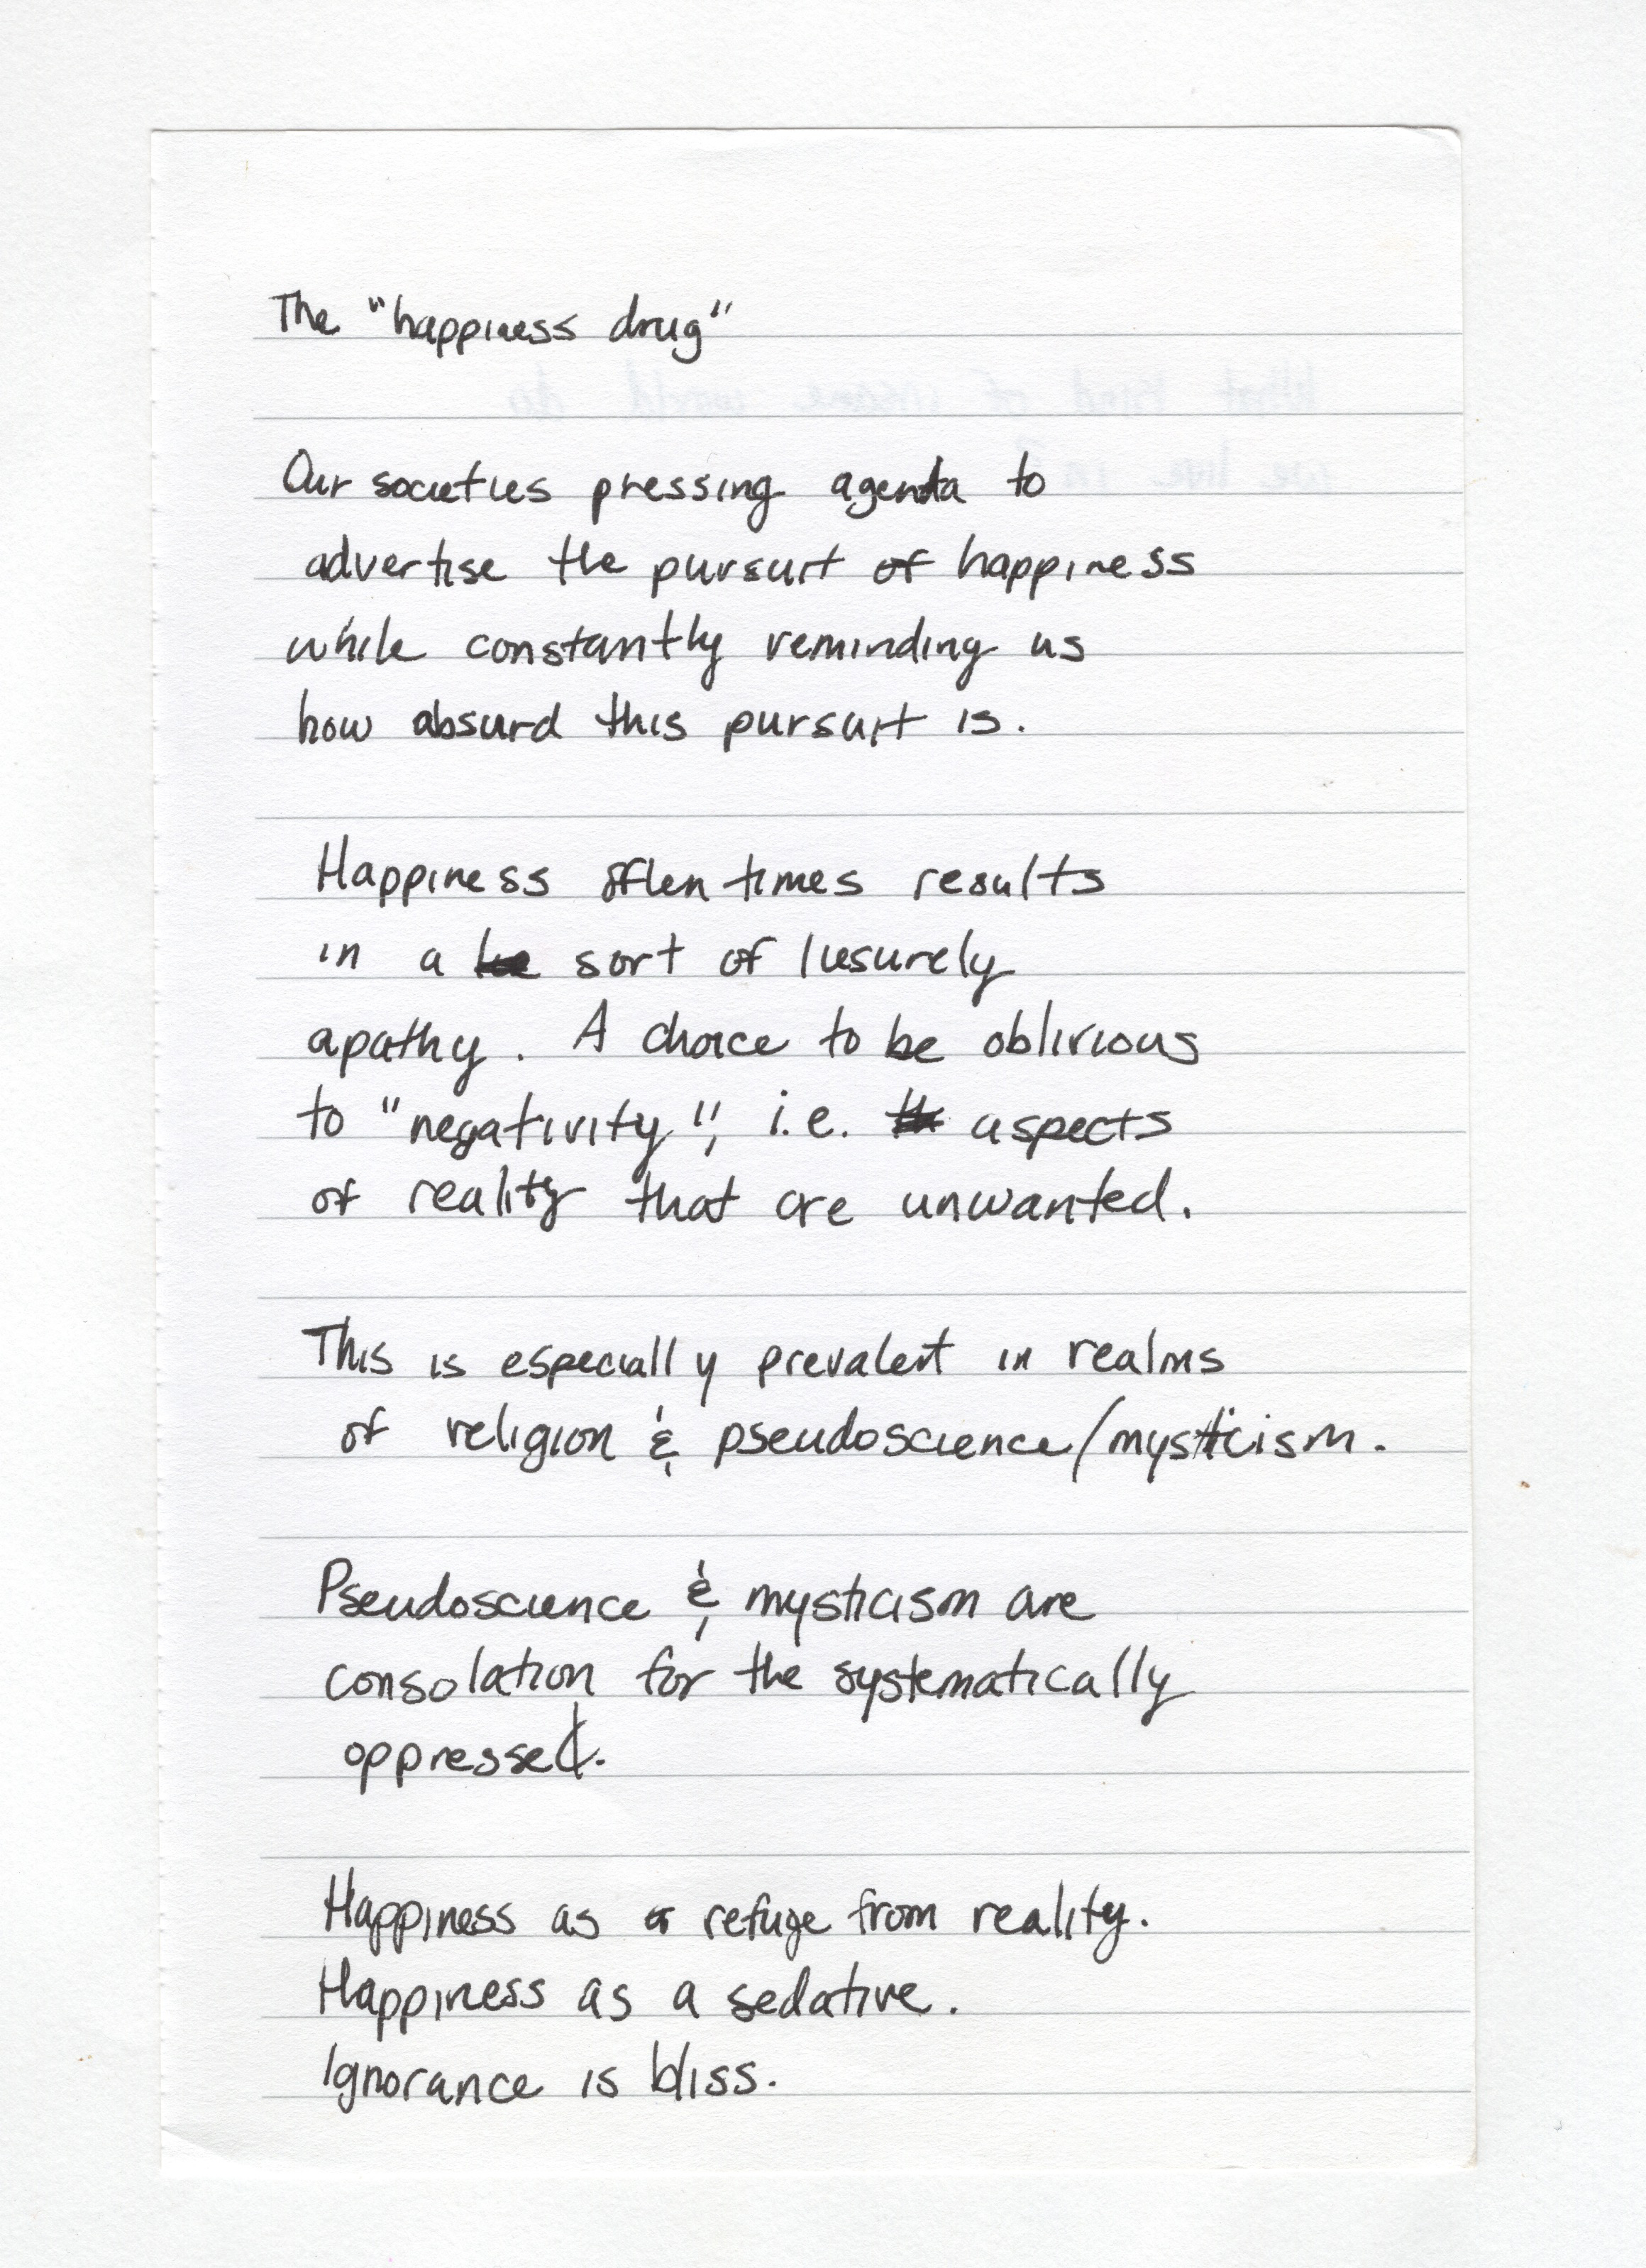 The "happiness drug"
What kind of insane world do
we live in?
Our societies pressing agenda to
advertise the pursuit of happiness
while constantly reminding us
how absurd this pursuit is.
Happiness often times results
in a sort of liesurely
apathy. A choice to be oblivious
to "negativity", i.e. aspects
of reality that are unwanted.
This is especially prevalent in realms
of religion & pseudoscience/mysticism.
Pseudoscience & mysticism are
consolation for the systematically
oppressed.
Happiness as a refuge from reality.
Happiness as a sedative.
Ignorance is bliss.